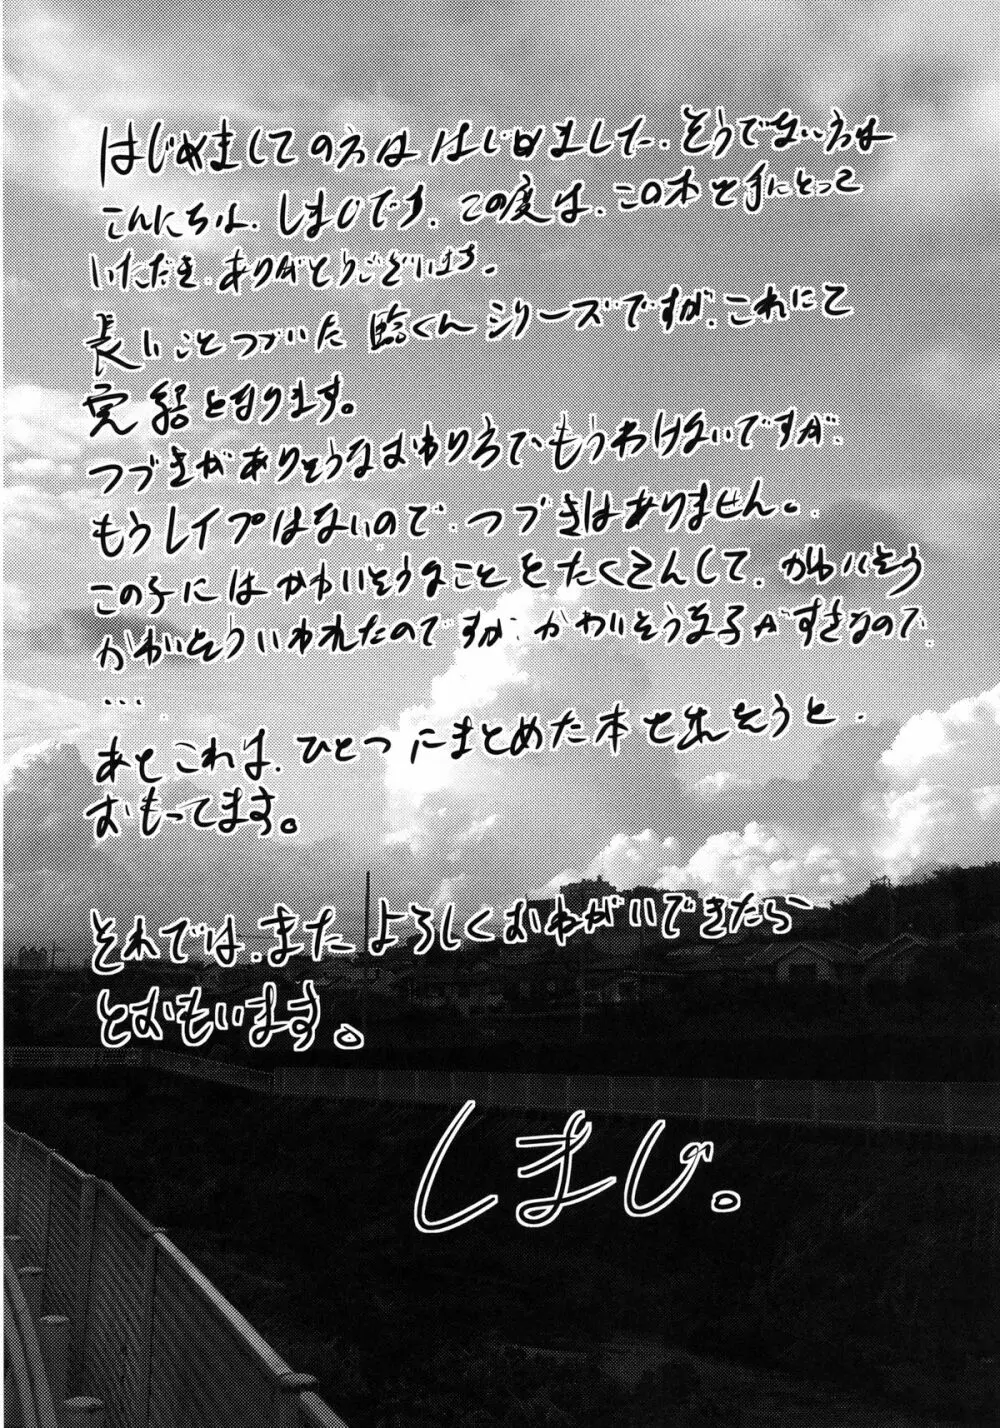 はじめましての方ははじめました、そうでない方は
こんにちは、しまじです。この度は、この本を手にとって
いただき、ありがとうございます。
長いことつづいた臨くんシリーズですが、これにて
完結となります。
つづきがありそうなおわり方でもうわけないですが、
もうレイプはないので、つづきはありません。
この子にはかわいそうなことをたくさんして、かわいそう
かわいそういわれたのですが、かわいそうな子がすきなので
…
あとこれは、ひとつにまとめた本を出そうと、
おもってます。
それでは、またよろしくおねがいできたら
とおもいます。
しまじ。